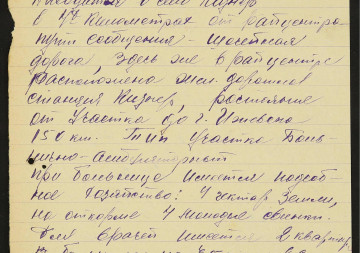 находится в селе Кизнер
в 4х километрах от райцентра
пути сообщения - шоссейная
дорога, здесь же в райцентре
расположена жел. дорожная
станция Кизнер, расстояние
от участка до г. Ижевска
150 км. Тип участка Боль-
нично-амбулаторный
При больнице имеется подсоб-
ное хозяйство: 4 гектар земли,
на откорме 4 молодые свинки.
Для врачей имеется 2 кварти